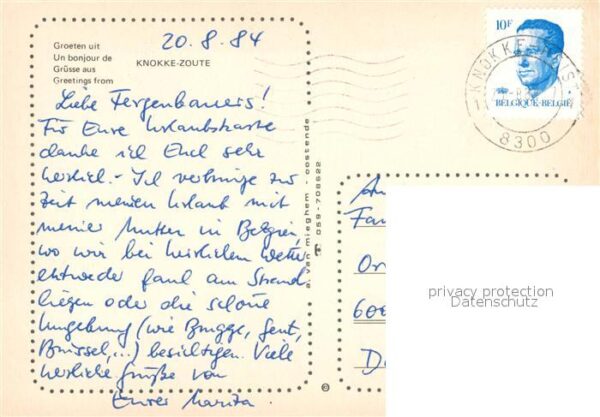 20.8.84
Groeten uit
Un bonjour de
Grüsse aus
Greetings from
KNOKKE-ZOUTE
Liebe Fergenbauers!
Für Eure Urlaubskarte
danke ich Euch sehr
herzlich.- Ich verbringe zur
Zeit meinen Urlaub mit
meiner Mutter in Belgien,
wo wir bei herrlichem Wetter
entweder faul am Strand
liegen oder die schöne
Umgebung (wie Brugge, Gent,
Brüssel,...) besichtigen. Viele
herzliche Grüße von
Eurer Marita.
a. van mieghem - oostende
059-708622
10F
BELGIQUE-BELGIË
KNOKKE-HEIST
8300
An
Fam
Or
600
D
privacy protection
Datenschutz